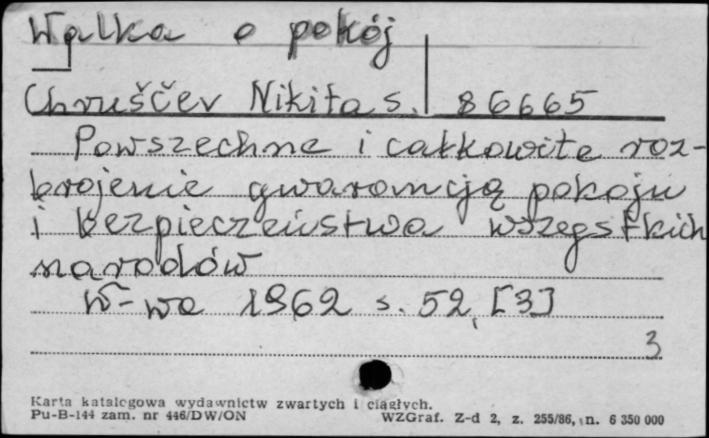 Walka o pokój
Chruščev Nikita S. 86665
Powszechne i całkowite roz-
brojenie gwarancją pokoju
i bezpieczeństwa wszystkich
narodów
W-wa 1962 s. 52, [3]
3
Karta katalogowa wydawnictw zwartych i ciągłych.
Pu-B-144 zam. nr 446/DW/ON WZGraf. Z-d 2, z. 255/86, n. 6 350 000